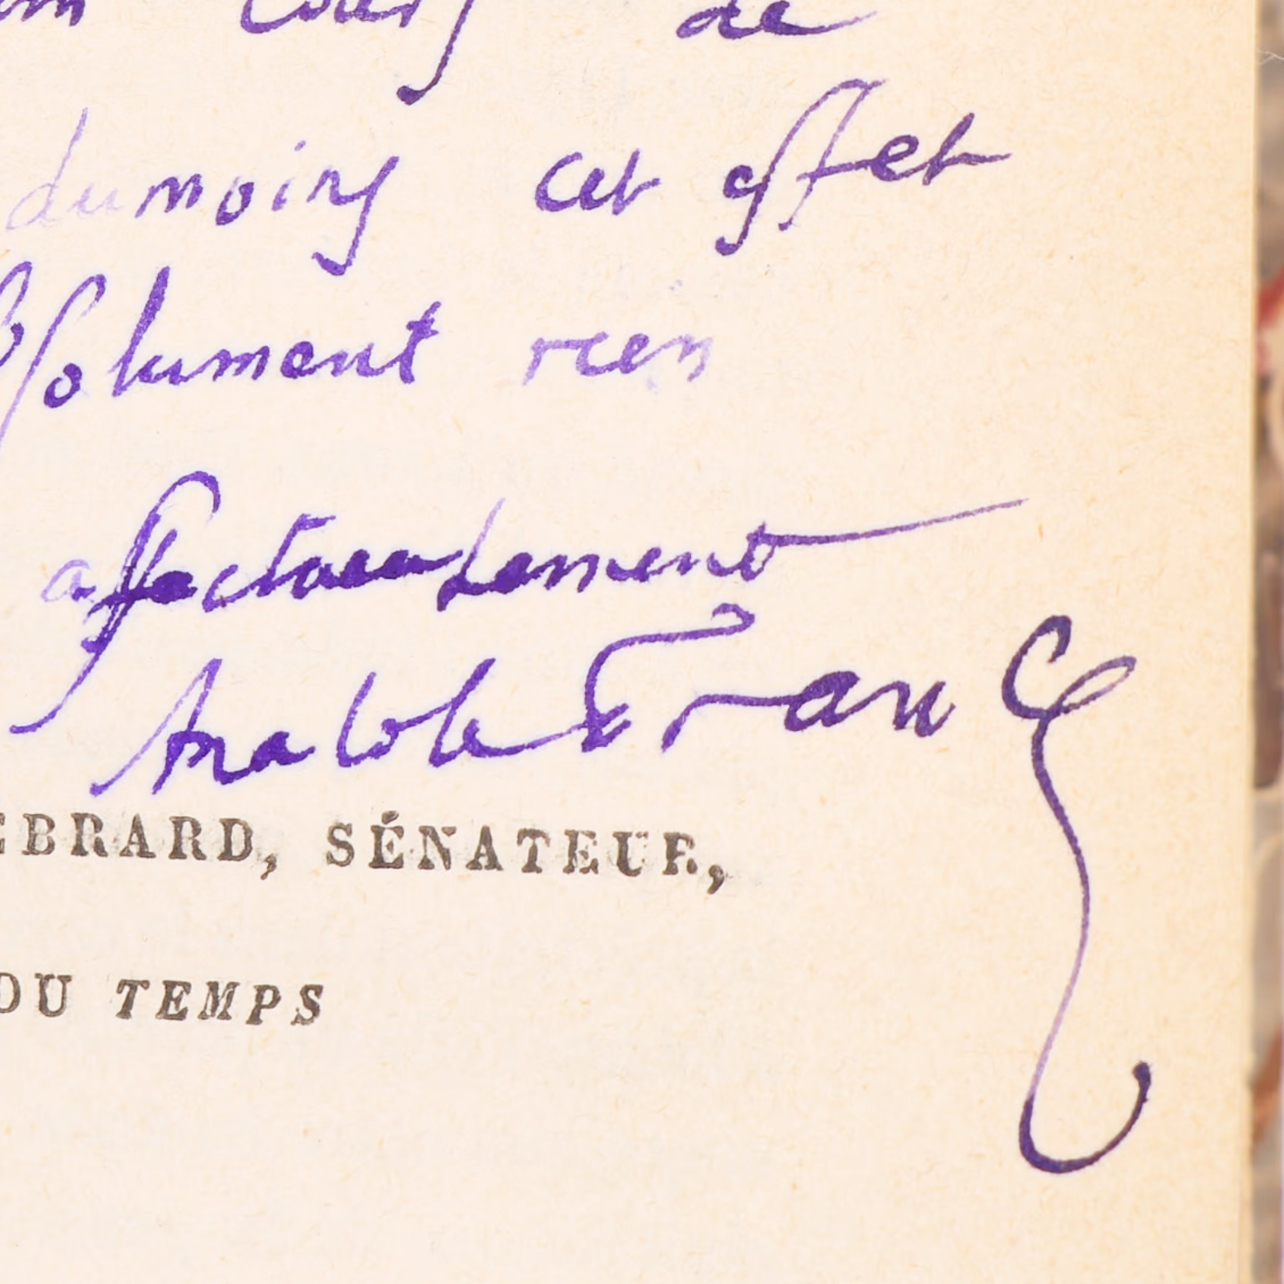 cours de
du moins cet effet
bsolument rien
affectueusement
Anatole France
EBRARD, SÉNATEUR,
DU TEMPS